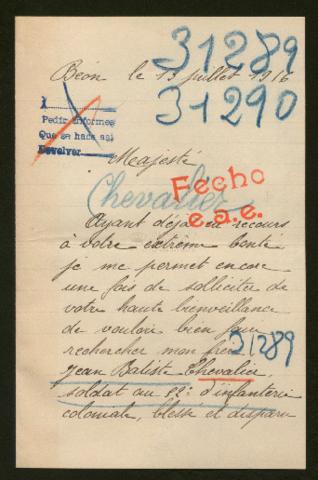 31289
Béon, le 13 juillet 1916
31290
1
Pedir informes
Que se haca asi
Devolver
Majesté
Chevalier
Fecho
e.a.e.
Ayant déjà eu recours
à votre extrême bonté
je me permet encore
une fois de solliciter de
votre haute bienveillance
de vouloir bien faire
rechercher mon frère
31289
Jean Batiste Chevalier,
soldat au 52e d'infanterie
coloniale, blessé et disparu